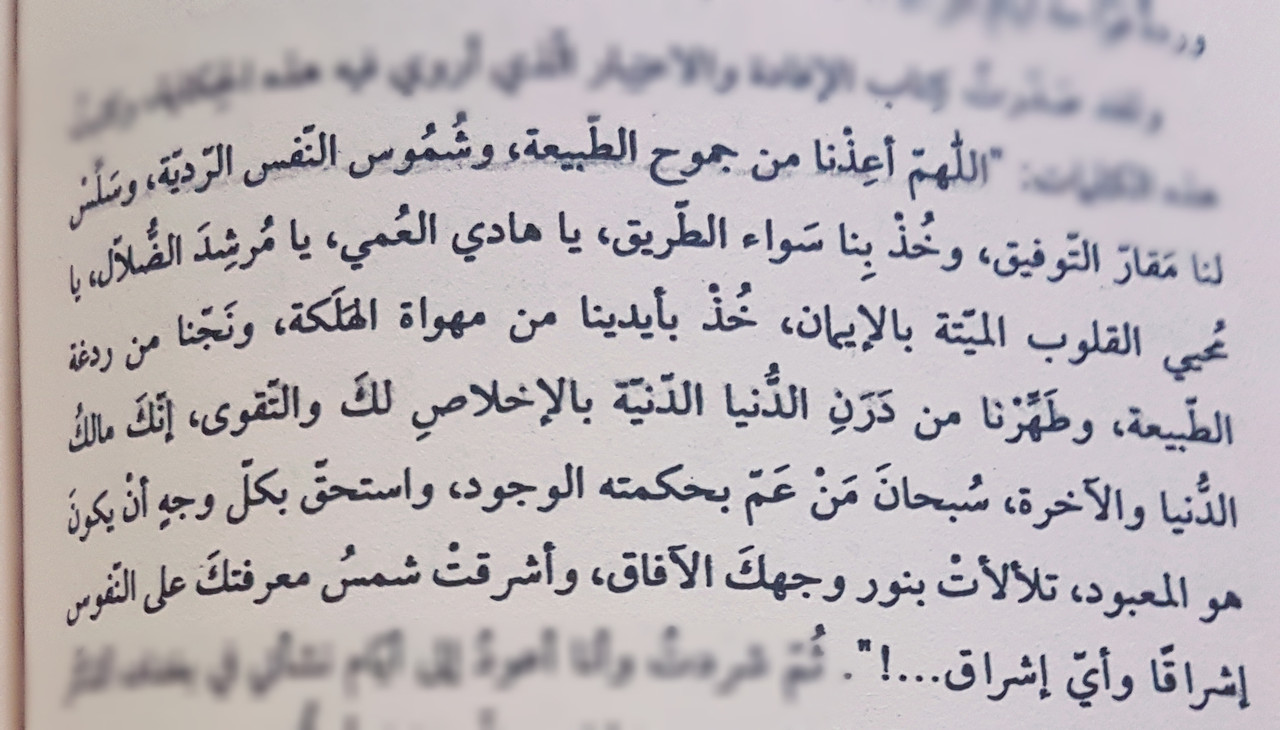 ولقد صدّرتُ كتاب الإفادة والاعتبار الّذي أروي فيه هذه
هذه الكلمات: "اللّهمّ أعِذْنا من جموح الطّبيعة، وشُمُوس النّفس الرّديّة، وسَلِّسْ
لنا مَقارّ التّوفيق، وخُذْ بِنا سَواء الطّريق، يا هادي العُمي، يا مُرشِدَ الضُّلاّل، يا
مُحيي القلوب الميّتة بالإيمان، خُذْ بأيدينا من مهواة الهَلَكة، ونَجّنا من ردغة
الطّبيعة، وطَهِّرْنا من دَرَنِ الدُّنيا الدّنيّة بالإخلاصِ لكَ والتّقوى، إنّكَ مالكُ
الدُّنيا والآخرة، سُبحانَ مَنْ عَمّ بحكمته الوجود، واستحقّ بكلّ وجهٍ أنْ يكونَ
هو المعبود، تلألأتْ بنور وجهكَ الآفاق، وأشرقتْ شمسُ معرفتكَ على النّفوس
إشراقًا وأيّ إشراق...!". ثُمّ شردتُ وأنا أعودُ إلى أيّام نشأتي في بغداد